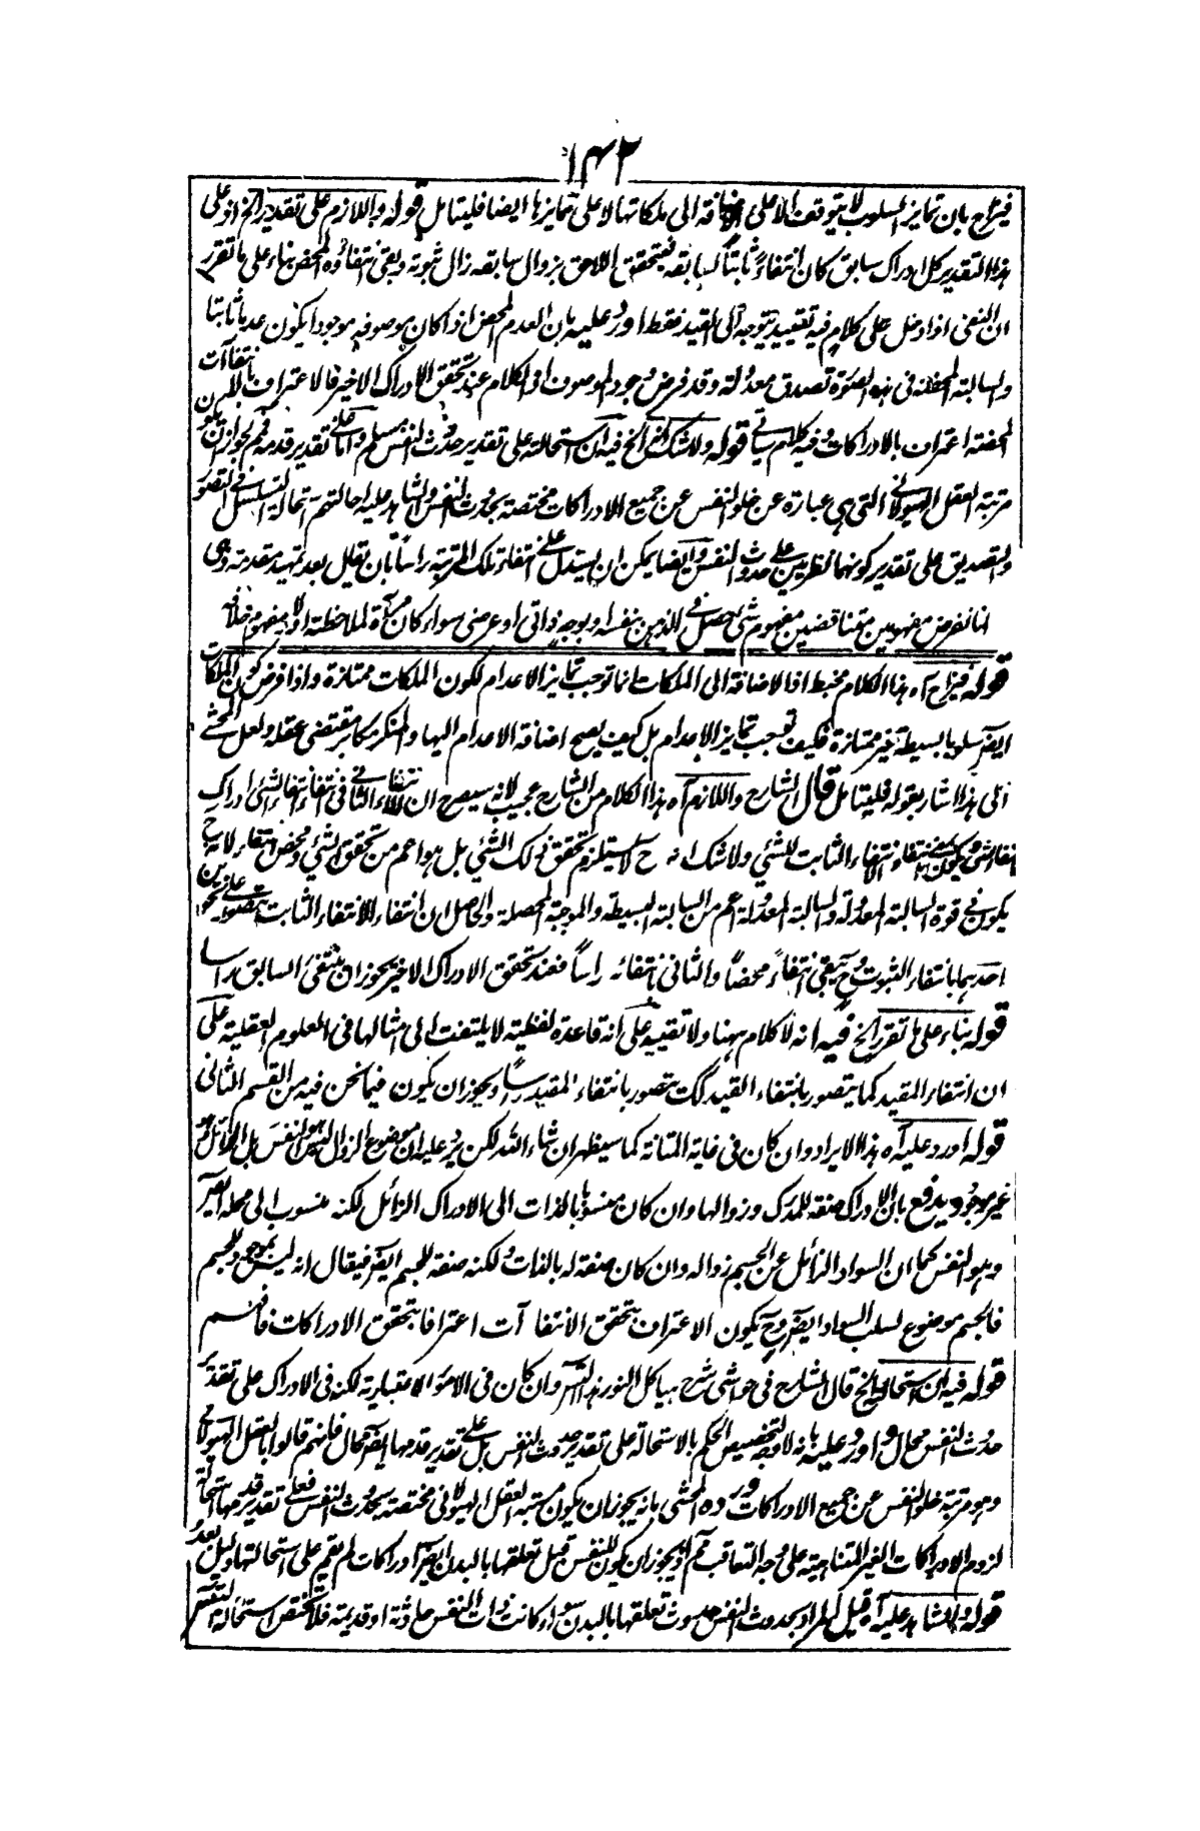 ١٤٢
فيزاح بان تمايز السلوب لا يتوقف الا على اضافة الى ملكاتها لا على تمايزها ايضا فليتامل قوله واللازم على تقدير الخ اذ على
هذا التقدير كل ادراك سابق كان انتفاءً ثابتاً لسابقه فبتحقق اللاحق بزوال سابقه زال ثبوته وبقى انتفاؤه المحض بناء على ما تقرر
ان النفى اذا دخل على كلام فيه تقييد يتوجه الى القيد فقط اورد عليه بان العدم المحض اذا كان موصوفه موجودا يكون عدما ثابتا
والسالبة المحصلة فى هذه الصورة تصدق معدولة وقد فرض وجود الموصوف فى الكلام عند تحقق الادراك الاخير فالاعتراف بانتفاآت
المحضة اعتراف بالادراكات وفيه كلام سياتى قوله ولا شك الخ فيه ان استحالته على تقدير حدوث النفس مسلم واما على تقدير قدمه فمم لجواز ان يكون
مرتبة العقل الهيولانى التى هى عبارة عن خلو النفس عن جميع الادراكات مختصة بحدوث النفس والشاهد عليه احالتهم استحالة التسلسل فى التصور
والتصديق على تقدير كونهما نظريين على حدوث النفس وايضا يمكن ان يستدل على انتفاء تلك المرتبة راساً بان تقليل بعد تمهيد مقدمة وهى
انا نفرض مفهومين متناقضين مفهوم شئ يحصل فى الذهن بنفسه او بوجه ذاتى او عرضى سواء كان مرآة لملاحظته اولا ومفهوم خلافه
قوله فيزاح آه هذا الكلام مخبط اذ الاضافة الى الملكات انما توجب تمايز الاعدام لكون الملكات ممتازة واذا فرض كون الملكات
ايضا سلوبا بسيطة غير ممتازة فكيف توجب تمايز الاعدام بل كيف يصح اضافة الاعدام اليها والمنكر مكابر مقتضى عقله ولعل المحشى
الى هذا اشار بقوله فليتامل قال الشارح واللازم آه هذا الكلام من الشارح عجيب لانه سيصرح ان الانتفاء الثانى فى انتفاء انتفاء الشئ ادراك
الانتفاء الثابت للشئ ولا شك انه ح لا يستلزم تحقق ذلك الشئ بل هو اعم من تحقق الشئ ومحض انتفاء لانه ح
يكون فى قوة السالبة المعدولة والسالبة المعدولة اعم من السالبة البسيطة والموجبة المحصلة والحاصل ان انتفاء الانتفاء الثابت يتصور على نحوين
احدهما بانتفاء الثبوت وح يبقى انتفاءً محضاً والثانى انتفائه راساً فعند تحقق الادراك الاخير يجوز ان ينتفى السابق راسا
قوله بناء على ما تقرر الخ فيه انه لا كلام ههنا ولا تقييد على انه قاعدة لفظية لا يلتفت الى امثالها فى العلوم العقلية على
ان انتفاء المقيد كما يتصور بانتفاء القيد كك يتصور بانتفاء المقيد راساً ويجوز ان يكون فيما نحن فيه من القسم الثانى
قوله اورد عليه آه هذا الايراد وان كان فى غاية المتانة كما سيظهر ان شاء الله لكن يرد عليه ان موضوع الزوال ليس هو النفس بل الادراك الزائل وهو
غير موجود ويدفع بان الادراك صفة للمدرك وزوالها وان كان منسوباً بالذات الى الادراك الزائل لكنه منسوب الى محله ايضا
وهو النفس كما ان السواد الزائل عن الجسم زواله وان كان صفة له بالذات ولكنه صفة للجسم ايضا فيقال انه ليس بموجود للجسم
فالجسم موضوع لسلب السواد ايضا وح يكون الاعتراف بتحقق الانتفاآت اعترافا بتحقق الادراكات فافهم
قوله فيه ان استحالة الخ قال الشارح فى حواشى شرح هياكل النور هذا التسلسل وان كان فى الامور الاعتبارية لكنه فى الادراك على تقدير
حدوث النفس محال واورد عليه بانه لا وجه لتخصيص الحكم بالاستحالة على تقدير حدوث النفس بل على تقدير قدمها ايضا محال فانهم قالوا بالعقل الهيولانى
وهو مرتبة خلو النفس عن جميع الادراكات ورده المحشى بانه يجوز ان يكون مرتبة العقل الهيولانى مختصة بحدوث النفس فعلى تقدير قدمها استحالة
لزوم الادراكات الغير المتناهية على وجه التعاقب مم اذ يجوز ان يكون للنفس قبل تعلقها بالبدن ايضا ادراكات لم يقم على استحالتها دليل بعد
قوله والشاهد عليه آه قيل المراد بحدوث النفس حدوث تعلقها بالبدن سواء كانت ذات النفس حادثة او قديمة فلا تختص استحالة التسلسل